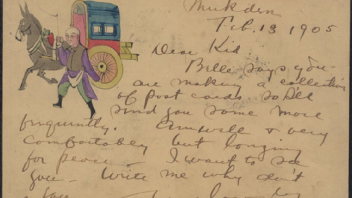 Mukden
Feb. 13 1905
Dear Kid
Belle says you
are making a collection
of post cards. So I'll
send you some more
frequently. Am well & very
comfortably but longing
for peace. I want to see
you - Write me why don't